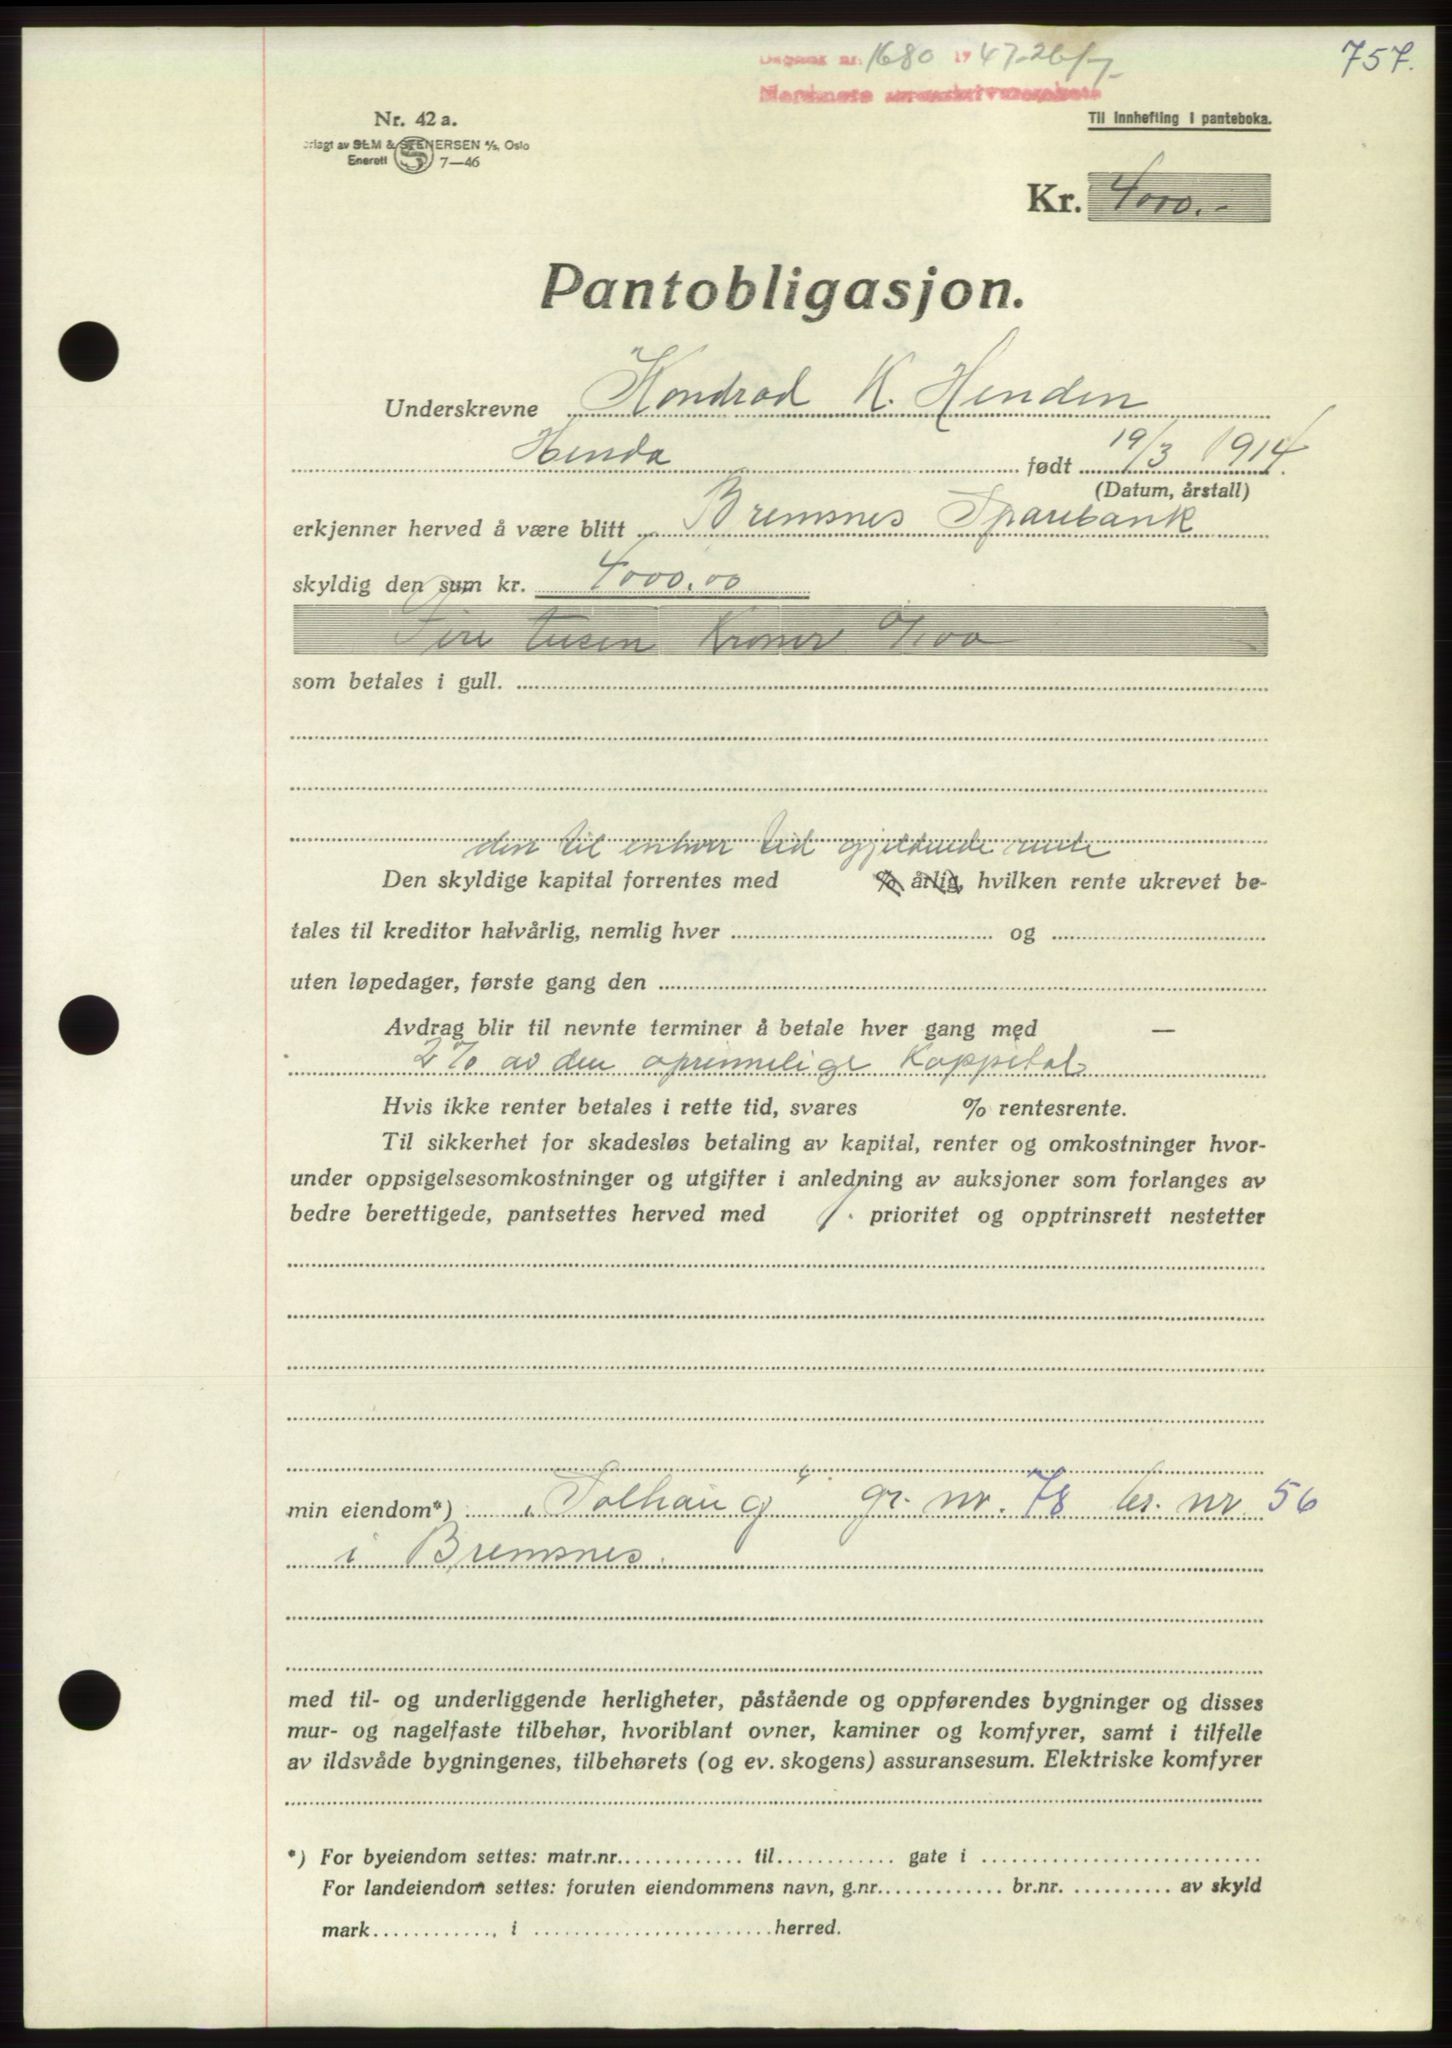 757.
Dagbok nr. 1680 1947-26/7
Nordmøre sorenskriverembete
Nr. 42 a.
Til innhefting i panteboka.
rlagt av SEM & STENERSEN A/S, Oslo
Enerett S 7—46
Kr. 4000.-
Pantobligasjon.
Underskrevne Kondrad K. Henden
Henda født 19/3 1914.
(Datum, årstall)
erkjenner herved å være blitt Bremsnes Sparebank
skyldig den sum kr. 4000,00
Fire tusen Kroner 0/00
som betales i gull.
den til enhver tid gjeldende rente
Den skyldige kapital forrentes med % årlig, hvilken rente ukrevet be-
tales til kreditor halvårlig, nemlig hver og
uten løpedager, første gang den
Avdrag blir til nevnte terminer å betale hver gang med —
2% av den oprinnelige Kappital
Hvis ikke renter betales i rette tid, svares % rentesrente.
Til sikkerhet for skadesløs betaling av kapital, renter og omkostninger hvor-
under oppsigelsesomkostninger og utgifter i anledning av auksjoner som forlanges av
bedre berettigede, pantsettes herved med 1. prioritet og opptrinsrett nestetter
min eiendom*) „Solhaug“ gr. nr. 78 br. nr 56
i Bremsnes.
med til- og underliggende herligheter, påstående og oppførendes bygninger og disses
mur- og nagelfaste tilbehør, hvoriblant ovner, kaminer og komfyrer, samt i tilfelle
av ildsvåde bygningenes, tilbehørets (og ev. skogens) assuransesum. Elektriske komfyrer
*) For byeiendom settes: matr.nr. til gate i
For landeiendom settes: foruten eiendommens navn, g.nr. br.nr. av skyld
mark , i herred.